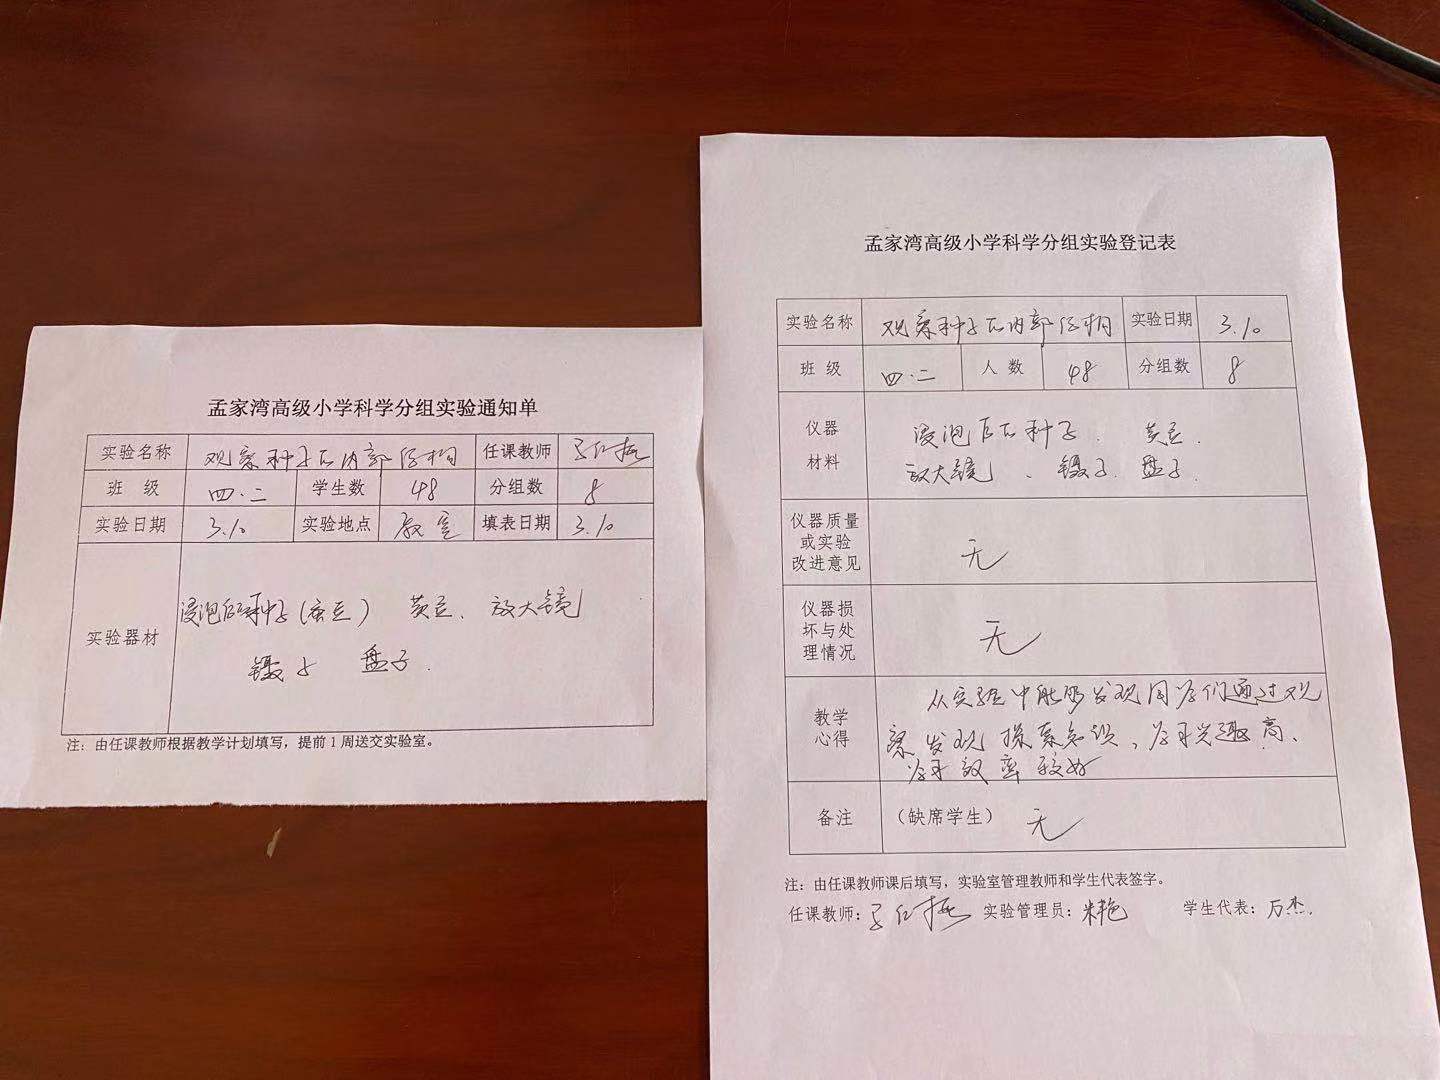 孟家湾高级小学科学分组实验通知单
实验名称 观察种子的内部结构 任课教师
班 级 四.二 学生数 48 分组数 8
实验日期 3.10 实验地点 教室 填表日期 3.10
实验器材
浸泡后的种子(蚕豆) 黄豆、放大镜
镊子 盘子.
注：由任课教师根据教学计划填写，提前1周送交实验室。
孟家湾高级小学科学分组实验登记表
实验名称 观察种子的内部结构 实验日期 3.10
班 级 四.二 人 数 48 分组数 8
仪器
材料
浸泡后的种子. 黄豆.
放大镜、镊子. 盘子.
仪器质量
或实验
改进意见
无
仪器损
坏与处
理情况
无
教学
心得
从实验中能够发现同学们通过观
察发现探索知识、学习兴趣高、
学习效率较好
备注 （缺席学生） 无
注：由任课教师课后填写，实验室管理教师和学生代表签字。
任课教师： 实验管理员：朱艳 学生代表：万杰.